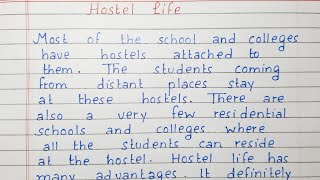 Hostel life
Most of the school and colleges
have hostels attached to
them. The students coming
from distant places stay
at these hostels. There are
also a very few residential
schools and colleges where
all the students can reside
at the hostel. Hostel life has
many advantages. It definitely